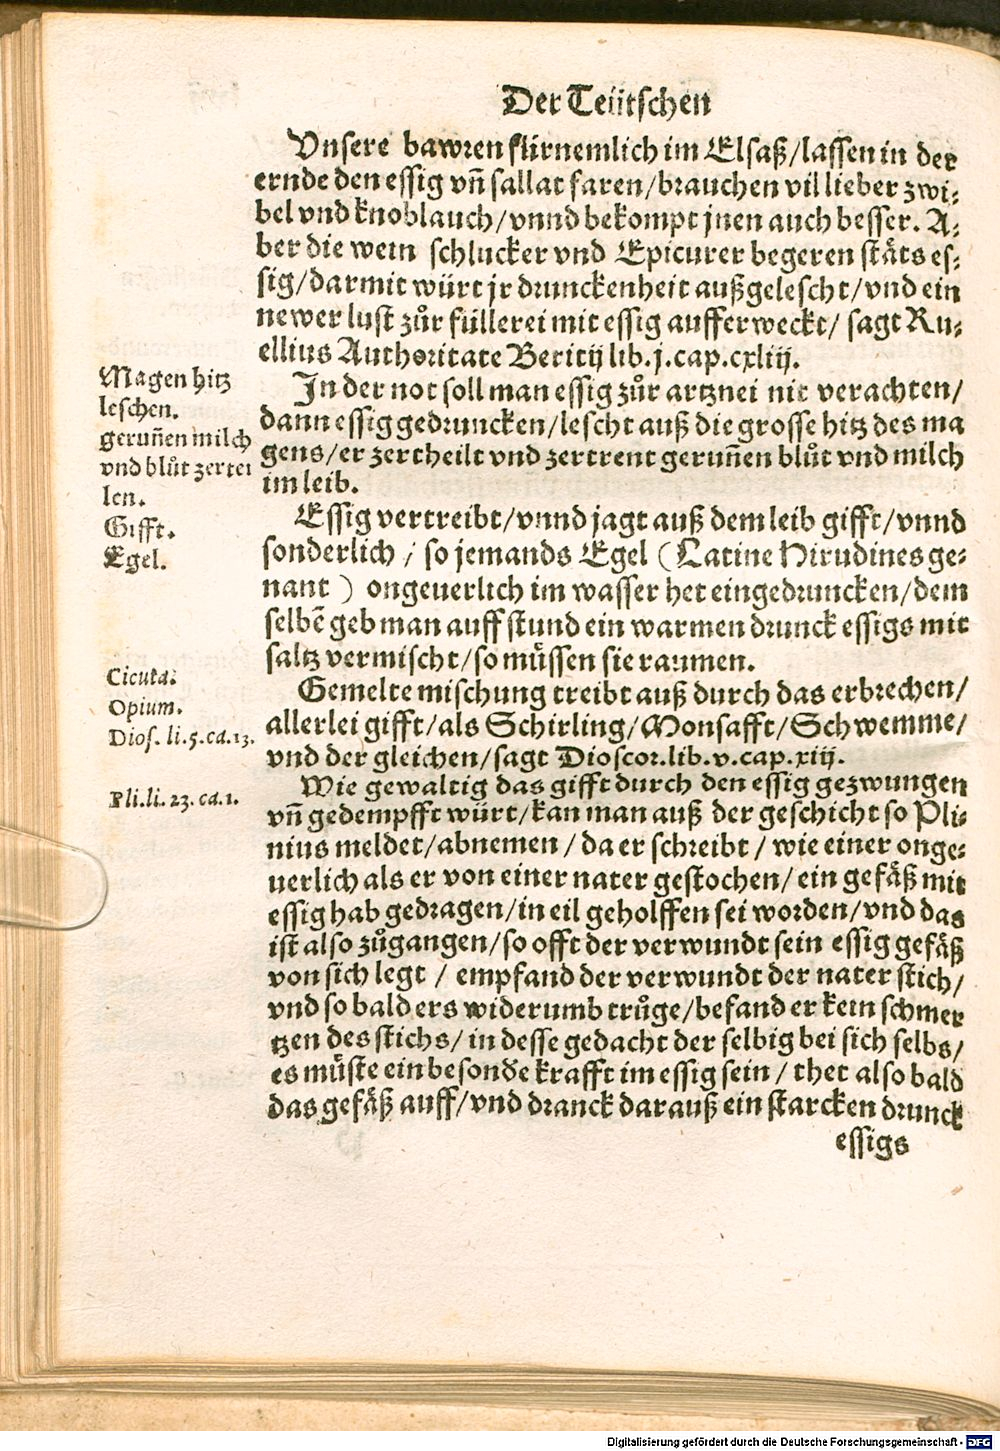 Der Teütschen
Vnsere bawren fürnemlich im Elsaß/lassen in der
ernde den essig vñ sallat faren/brauchen vil lieber zwi⸗
bel vnd knoblauch/vnnd bekompt jnen auch besser. A⸗
ber die wein schlucker vnd Epicurer begeren stäts es⸗
sig/darmit würt jr drunckenheit außgelescht/vnd ein
newer lust zůr füllerei mit essig aufferweckt/ sagt Ru⸗
ellius Authoritate Beritij lib.j.cap.cxliij.
Magen hitz
leschen.
gerunnẽ milch
vnd blůt zertei
len.
Gifft.
Egel.
In der not soll man essig zůr artznei nit verachten/
dann essig gedruncken/lescht auß die grosse hitz des ma
gens/er zertheilt vnd zertrent geruñen blůt vnd milch
im leib.
Essig vertreibt/vnnd jagt auß dem leib gifft/vnnd
sonderlich / so jemands Egel (Latine Hirudines ge⸗
nant ) ongeuerlich im wasser het eingedruncken/dem
selbẽ geb man auff stund ein warmen drunck essigs mit
saltz vermischt/so müssen sie raumen.
Cicuta.
Opium.
Dios. li.5.ca.13.
Gemelte mischung treibt auß durch das erbrechen/
allerlei gifft/als Schirling/Monsafft/Schwemme/
vnd der gleichen/sagt Dioscor.lib.v.cap.xiij.
Pli.li.23.ca.1.
Wie gewaltig das gifft durch den essig gezwungen
vñ gedempfft würt/kan man auß der geschicht so Pli⸗
nius meldet/abnemen / da er schreibt / wie einer onge⸗
uerlich als er von einer nater gestochen/ ein gefäß mit
essig hab gedragen/in eil geholffen sei worden/vnd das
ist also zůgangen/so offt der verwundt sein essig gefäß
von sich legt / empfand der verwundt der nater stich/
vnd so bald ers widerumb trůge/befand er kein schmer
tzen des stichs/ in desse gedacht der selbig bei sich selbs/
es müste ein besonde krafft im essig sein / thet also bald
das gefäß auff/vnd dranck darauß ein starcken drunck
essigs
Digitalisierung gefördert durch die Deutsche Forschungsgemeinschaft - DFG